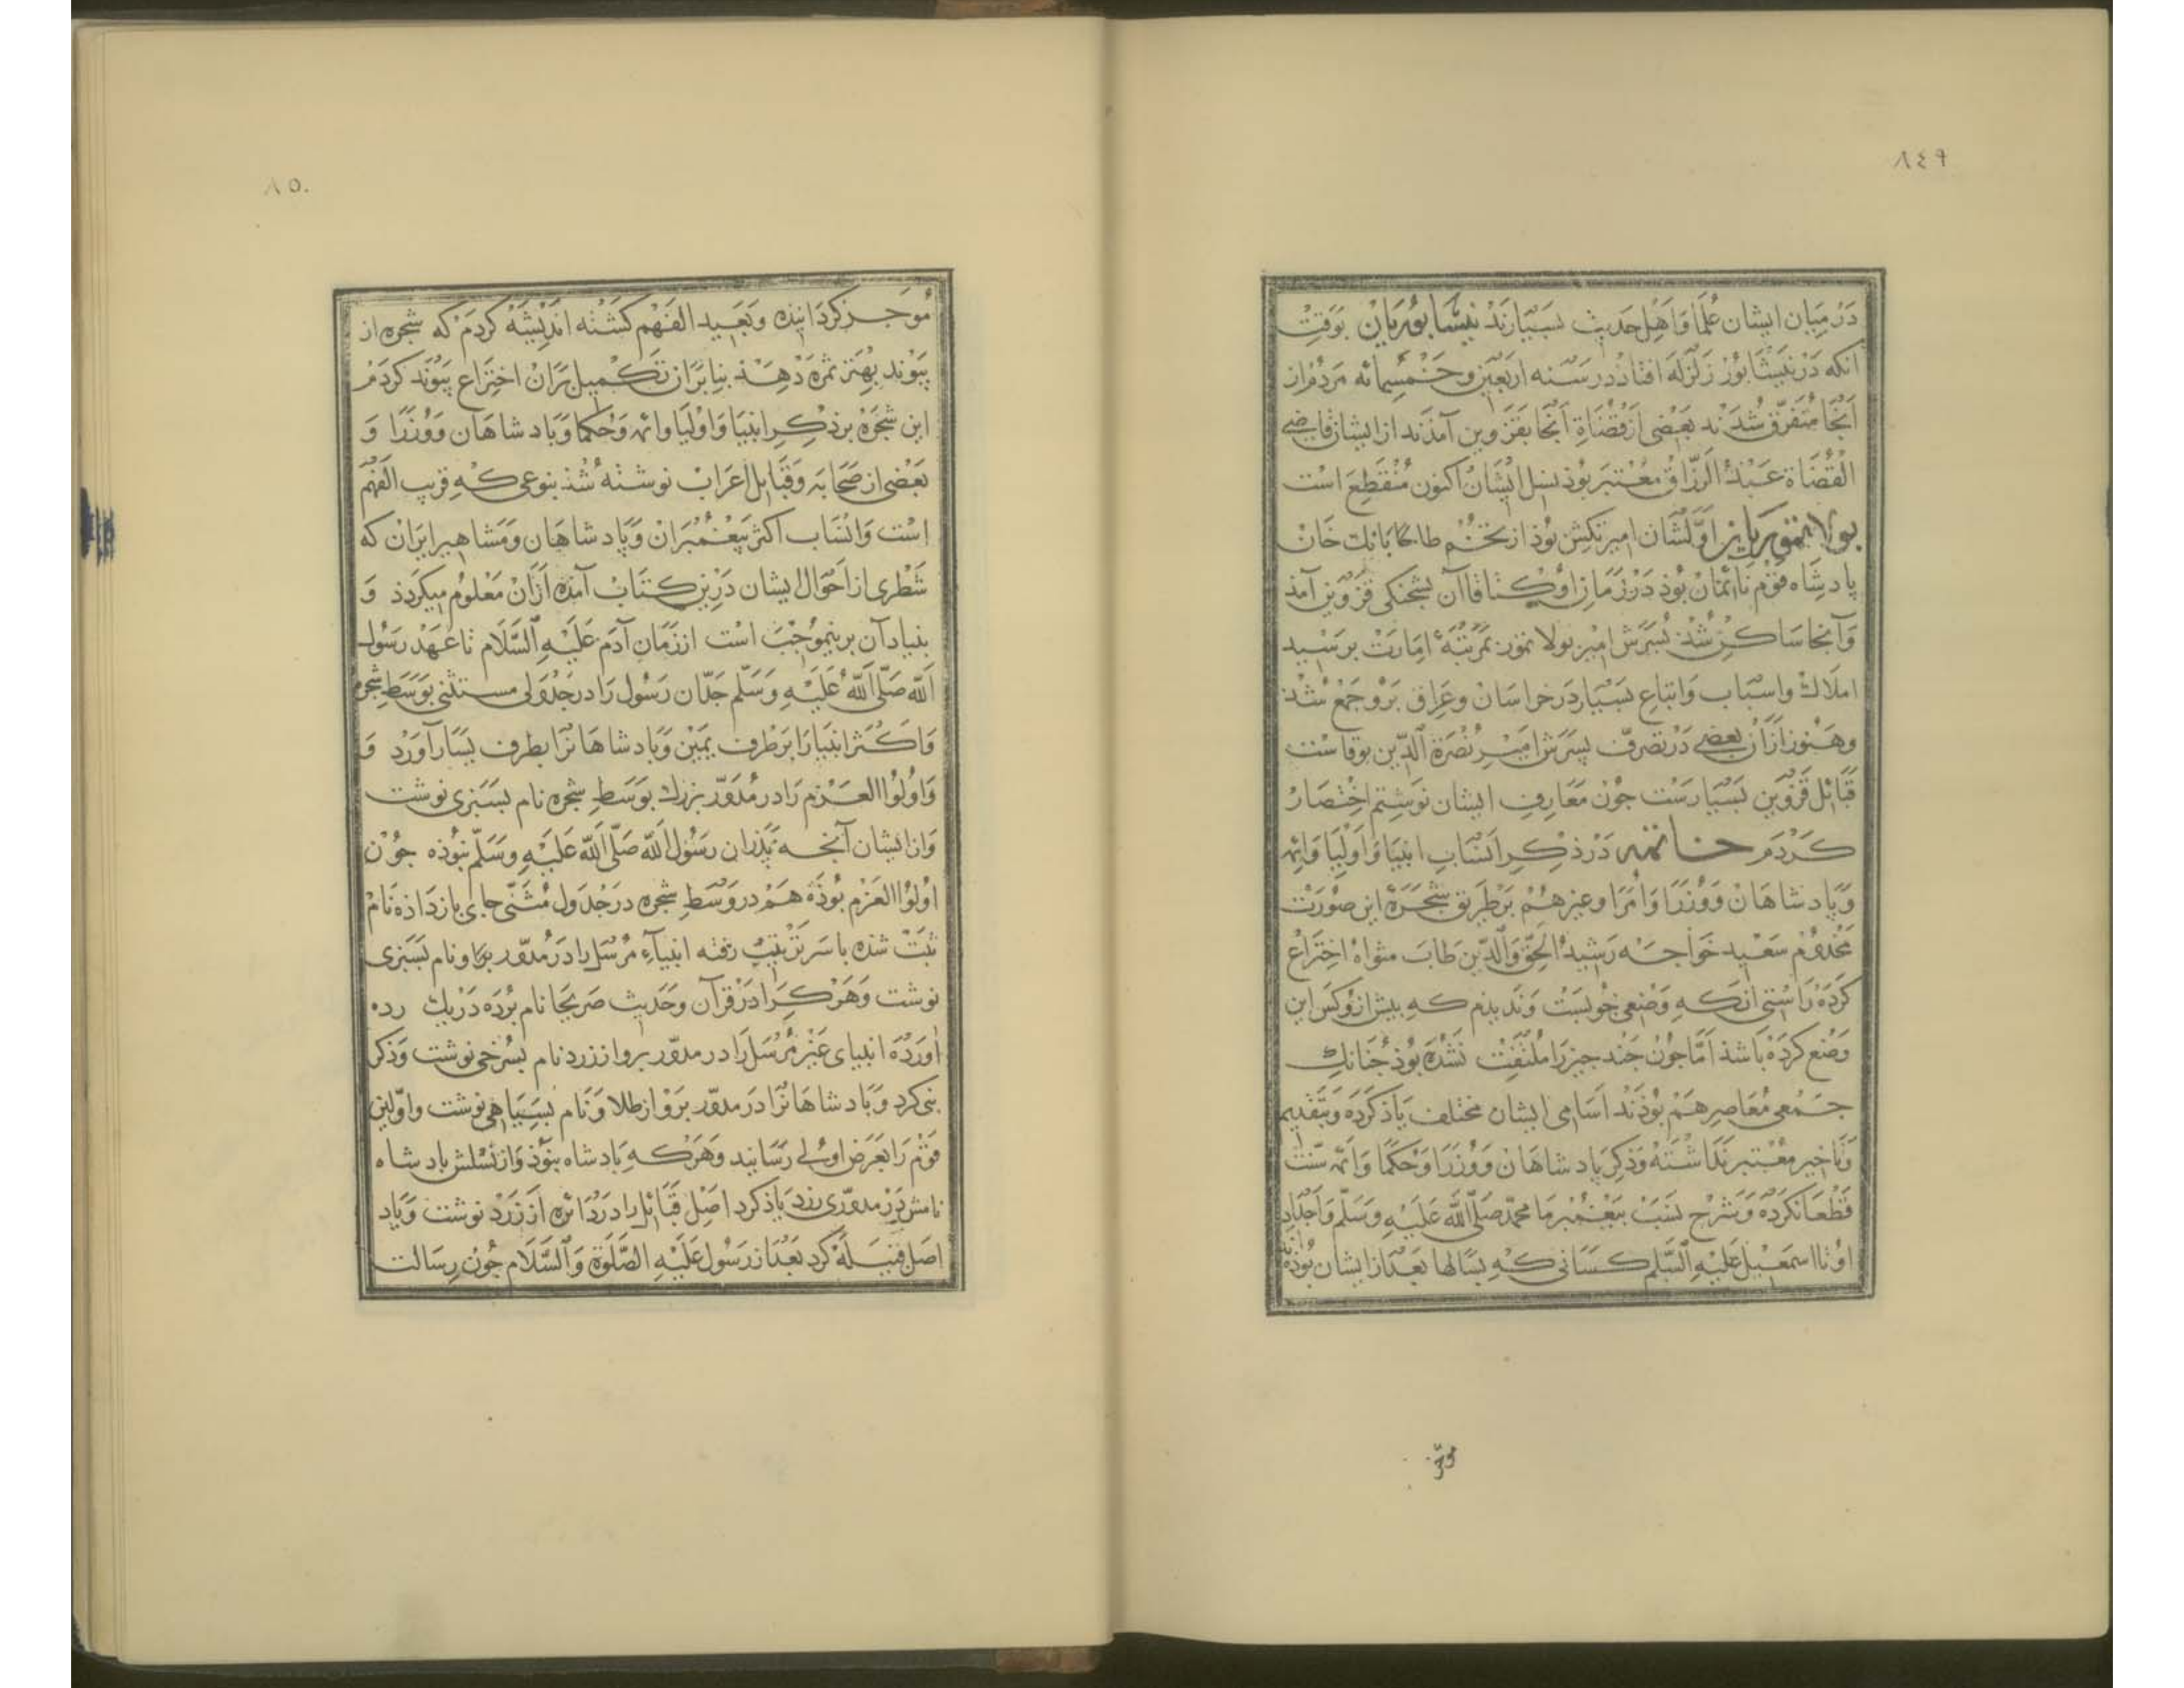 ٨٤٩
در میان ایشان علما و اهل حدیث بسیارند نیشابوریان بوقت
انکه در نیشابور زلزله افتاد در سنه اربعین و خمسمائه مردم از
آنجا متفرق شدند بعضی از قضاة آنجا بقزوین آمدند از ایشان قاضی
القضاة عبد الرزاق معتبر بوذ نسل ایشان اکنون منقطع است
بولاتموریان اولشان امیر تکش بوذ از تخم طانکا بانك خان
پادشاه قوم نائمان بوذ در زمان اوکتا قاآن بشحنکی قزوین آمذ
و آنجا ساکن شد پسرش امیر بولا تمور بمرتبهٔ امارت برسید
املاك و اسباب و اتباع بسیار در خراسان و عراق برو جمع شد
و هنوز از آن بعضی در تصرف پسرش امیر نصرة الدین بوقاست
قبائل قزوین بسیارست جون معارف ایشان نوشتم اختصار
کردم خاتمه در ذکر انساب انبیا و اولیا و ائمه
و پادشاهان و وزرا و امرا و غیرهم بر طریق شجره این صورت
مخدوم سعید خواجه رشید الحق والدین طاب مثواه اختراع
کرده راستی انکه وضعی خوبست و ندیذم که بیش ازو کس این
وضع کرده باشذ اما جون جند جیز را ملتفت نشده بوذ جنانك
جمعی معاصر هم بوذند اسامی ایشان مختلف یاذ کرده و بتقدیم
و تاخیر معتبر نداشته و ذکر پادشاهان و وزرا و حکما و ائمه سنت
قطعا نکرده و شرح نسب بیغمبر ما محمد صلی الله علیه وسلم و اجداد
او تا اسمعیل علیه السلم کسانی که بسالها بعد از ایشان بوذه
٨٥٠
موجز کردانیده و بعید الفهم کشته اندیشه کردم که شجره از
پیوند بهتر ثمره دهذ بنابر آن تکمیل بران اختراع پیوند کردم
این شجره بر ذکر انبیا و اولیا و ائمه و حکما و پادشاهان و وزرا و
بعضی از صحابه و قبایل اعراب نوشته شذ بنوعی که قریب الفهم
است و انساب اکثر پیغمبران و پادشاهان و مشاهیر ایران که
شطری از احوال ایشان درین کتاب آمده از آن معلوم میکردذ و
بنیاد آن برینموجب است از زمان آدم علیه السلام تا عهد رسول
الله صلی الله علیه وسلم جدان رسول را در جدولی مستثنی بوسط شجره
و اکثر انبیا را بر طرف یمین و پادشاهانرا بطرف یسار آورد و
و اولوا العزم را در مدور بزرك بوسط شجره نام بسبزی نوشت
و از ایشان آنجه پذران رسول الله صلی الله علیه وسلم نبوذه جون
اولوا العزم بوذه هم در وسط شجره در جدول مثنی جای باز داذه نام
ثبت شده باسر ترتیب رفته انبیاء مرسل را در مدور برکار و نام بسبزی
نوشت و هر کرا در قرآن و حدیث صریحا نام برده در یك رده
اورده انبیای غیر مرسل را در مدور برو از زرد نام بسرخی نوشت و ذکر
نبی کرد و پادشاهانرا در مدور برو از طلا و نام بسیاهی نوشت و اولین
قوم را بعرض اولی رسانید و هر که پادشاه نبوذ و از نسلش پادشاه
نامش در مدوری زرد یاذ کرد اصل قبائل را در دائره از زرد نوشت و یاد
اصل قبیله کرد بعد از رسول علیه الصلوة والسلام جون رسالت